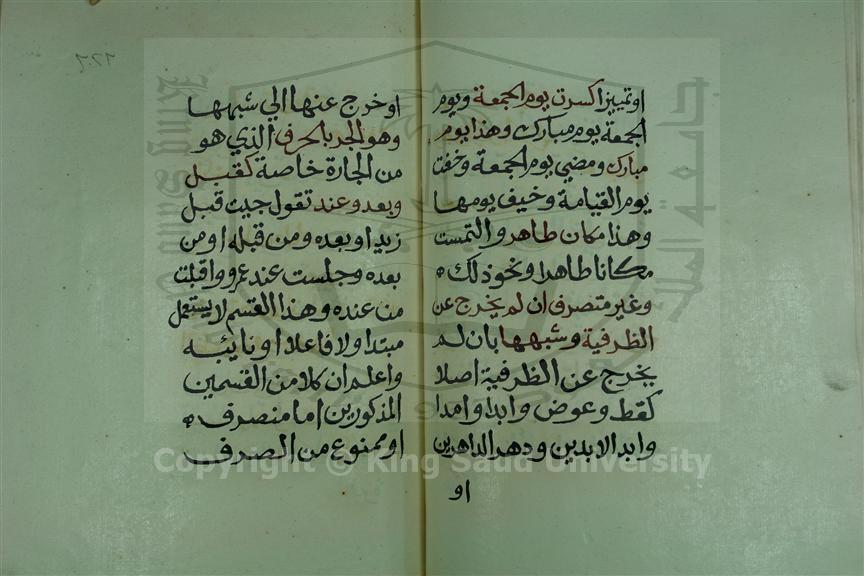 او تمييزا كسرت يوم الجمعة ويوم
الجمعة يوم مبارك وهذا يوم
مبارك ومضي يوم الجمعة وخفت
يوم القيامة وخيف يومها
وهذا مكان طاهر والتمست
مكانا طاهرا ونحو ذلك ه
وغير متصرف ان لم يخرج عن
الظرفية وشبهها بان لم
يخرج عن الظرفية اصلا
كقط وعوض وابدا وامدا
وابد الابدين ودهر الداهرين
او
او خرج عنها الي شبهها
وهو الجر بالحرف الذي هو
من الجارة خاصة كقبل
وبعد وعند تقول جيت قبل
زيد او بعده ومن قبله او من
بعده وجلست عند عمرو واقبلت
من عنده وهذا القسم لا يستعمل
مبتدا ولا فاعلا او نايبه
واعلم ان كلا من القسمين
المذكورين اما منصرف ه
او ممنوع من الصرف
Copyright © King Saud University